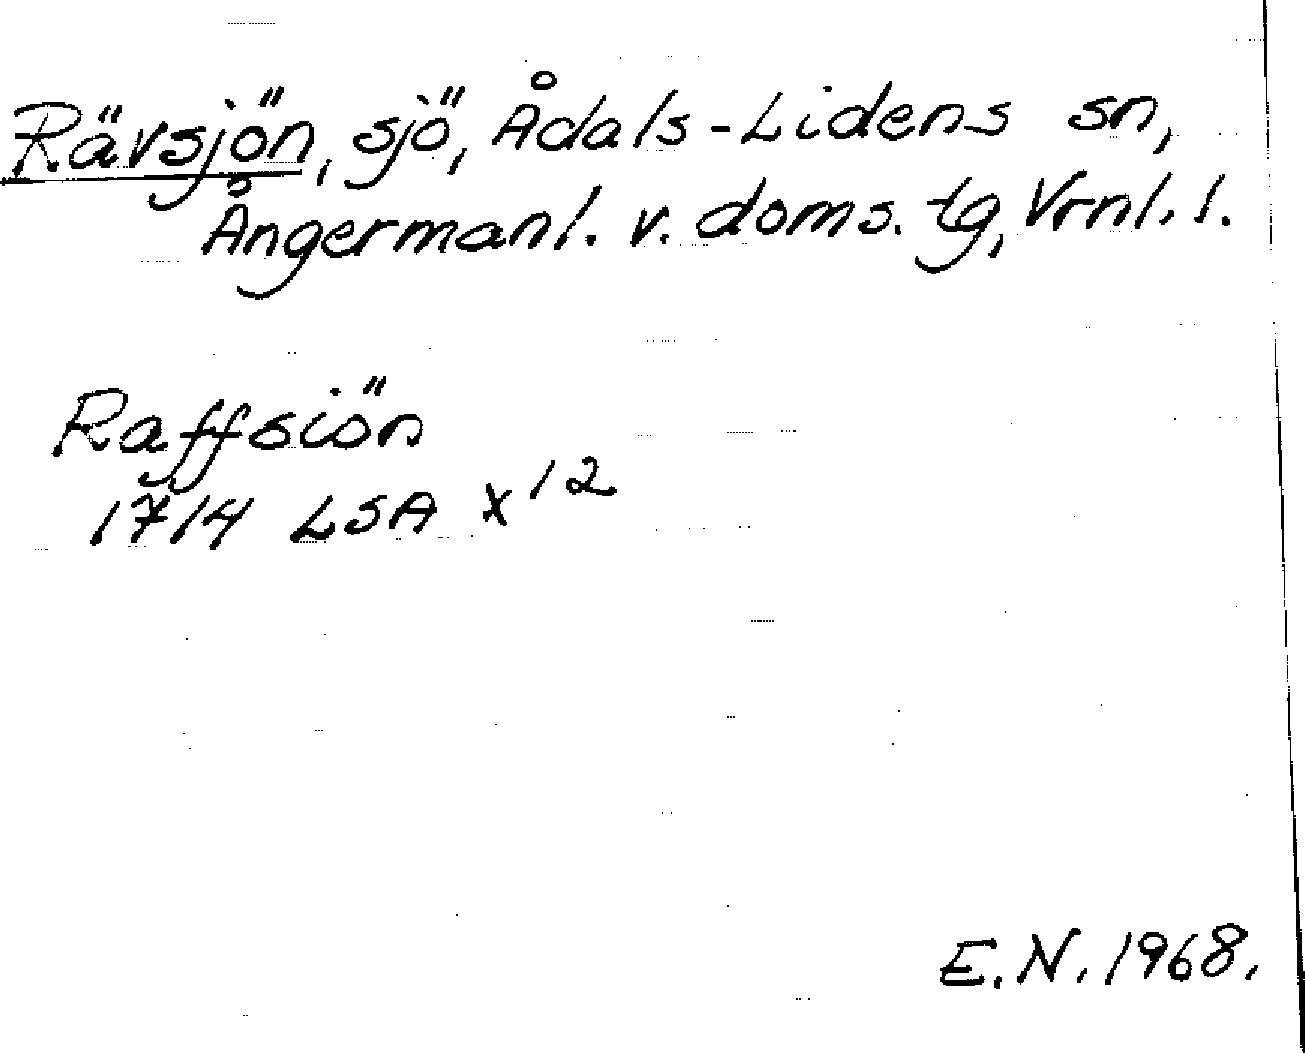 Rävsjön, sjö, Ådals-Lidens sn,
Ångermanl. v. doms. tg, Vrnl. l.
Raffsiön
1714 LSA X12
E.N. 1968.